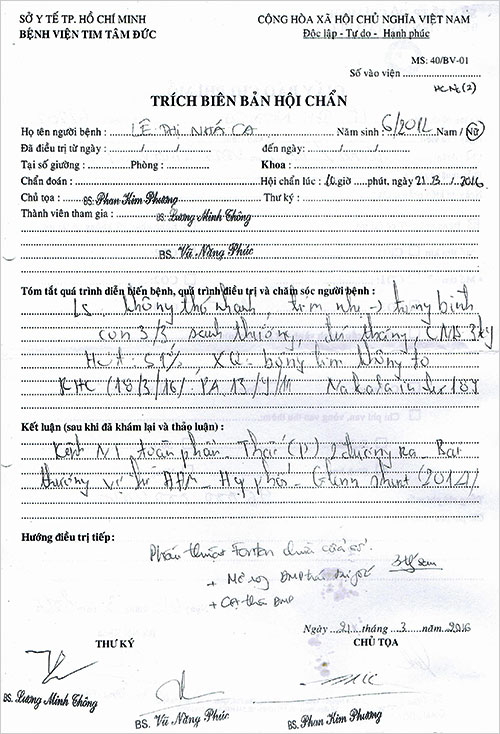 SỞ Y TẾ TP. HỒ CHÍ MINH
BỆNH VIỆN TIM TÂM ĐỨC
CỘNG HÒA XÃ HỘI CHỦ NGHĨA VIỆT NAM
Độc lập - Tự do - Hạnh phúc
MS: 40/BV-01
Số vào viện
TRÍCH BIÊN BẢN HỘI CHẨN
Họ tên người bệnh : LÊ PHI NHÃ CA Năm sinh : 6/2012 Nam / Nữ
Đã điều trị từ ngày : ....../....../...... đến ngày: ....../....../......
Tại số giường : Phòng : Khoa :
Chẩn đoán : Hội chẩn lúc : 10 giờ ..... phút, ngày 21/3/2016
Chủ tọa : BS. Phan Kim Phương Thư ký :
Thành viên tham gia : BS. Lương Minh Thông
BS. Vũ Năng Phúc
Tóm tắt quá trình diễn biến bệnh, quá trình điều trị và chăm sóc người bệnh :
LS không thở nhanh, tím nhẹ -> trung bình
con 3/3 sanh thường, đủ tháng,
Hct : 59%, XQ : bóng tim không to
(18/3/16) : PA 13/4/11 Nakata index 187
Kết luận (sau khi đã khám lại và thảo luận) :
toàn phần - Thất (P) 2 đường ra - Bất
thường - Hẹp phổi - Glenn shunt (2014)
Hướng điều trị tiếp:
Phẫu thuật Fontan chưa cửa sổ.
+ Mở rộng ĐMP
+ ĐMP
Ngày 21 tháng 3 năm 2016
THƯ KÝ
CHỦ TỌA
BS. Lương Minh Thông
BS. Vũ Năng Phúc
BS. Phan Kim Phương